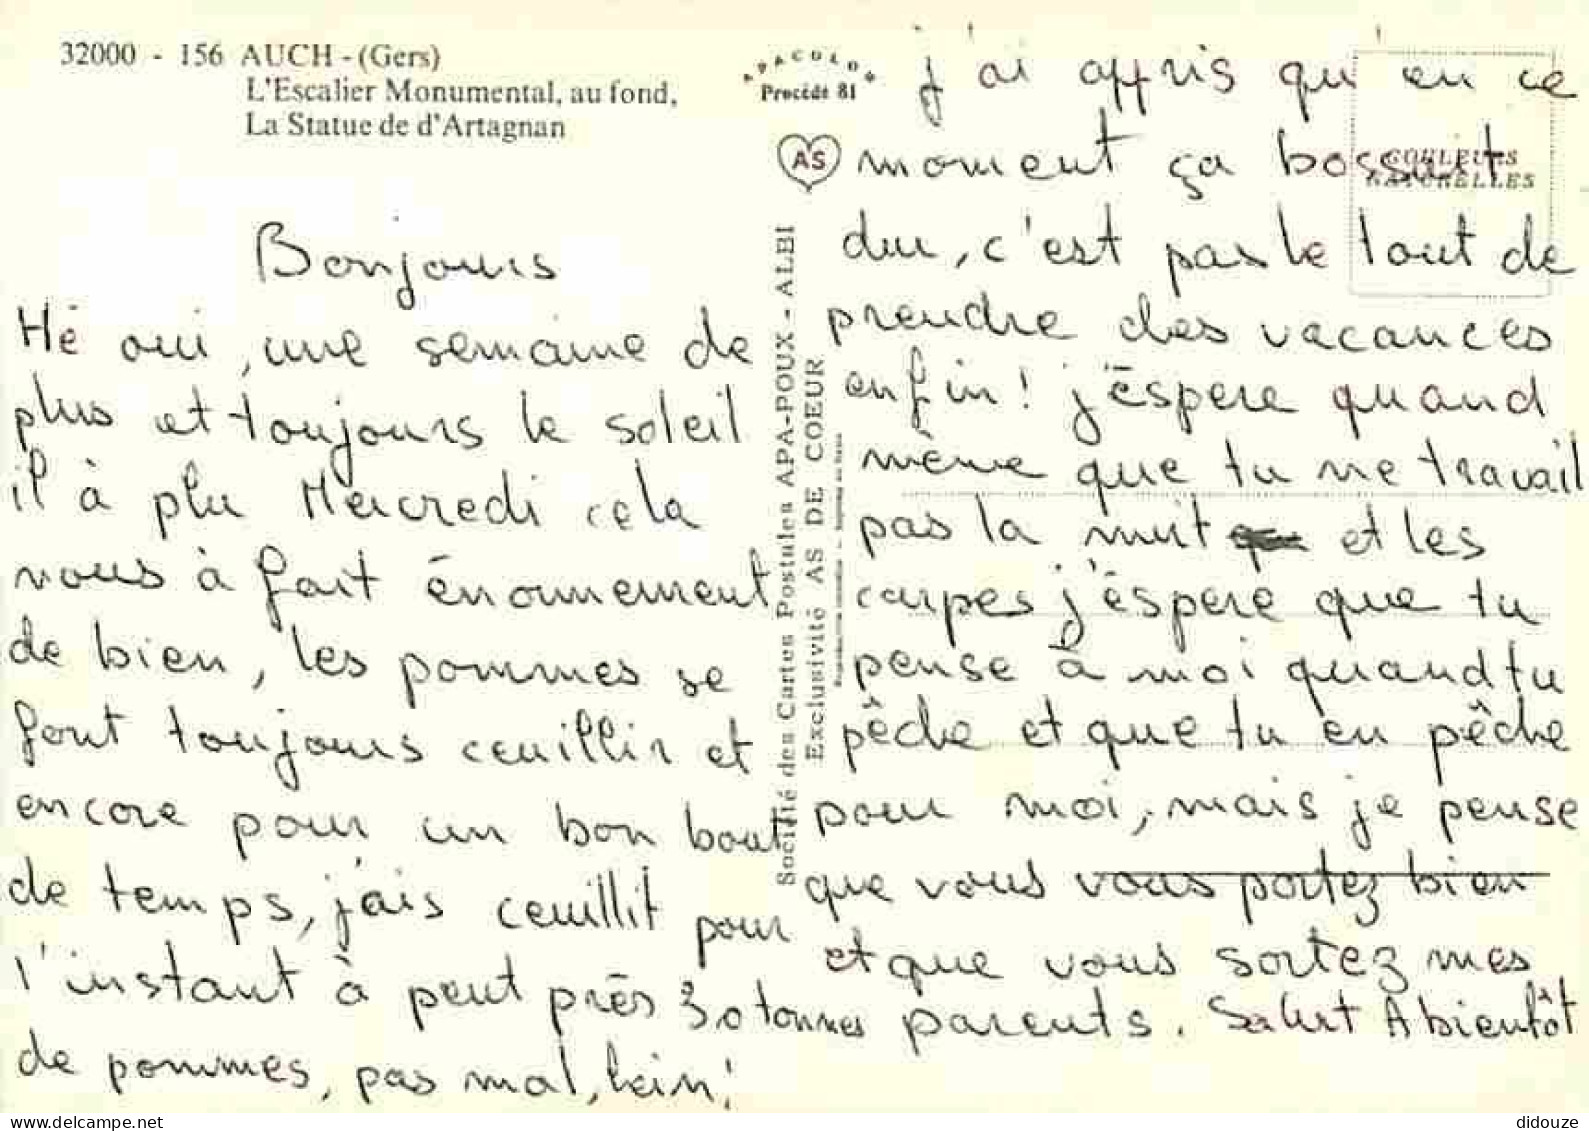 32000 - 156 AUCH - (Gers)
L'Escalier Monumental, au fond,
La Statue de d'Artagnan
Bonjours
Hé oui, une semaine de
plus et toujours le soleil
il à plu Mercredi cela
nous à fait énormement
de bien, les pommes se
font toujours ceuillir et
encore pour un bon bout
de temps, j'ais ceuillit pour
l'instant à peut près 30 tonnes
de pommes, pas mal, hein!
APACOLOR
Procédé 81
AS
COULEURS
NATURELLES
Société des Cartes Postales APA-POUX - ALBI
Exclusivité AS DE COEUR
j'ai appris qu'en ce
moment ça bossait
dur, c'est pas le tout de
prendre des vacances
enfin! j'éspere quand
même que tu ne travail
pas la nuit et les
carpes j'éspere que tu
pense à moi quand tu
pêche et que tu en pêche
pour moi, mais je pense
que vous vous portez bien
et que vous sortez mes
parents. Salut A bientôt
www.delcampe.net
didouze